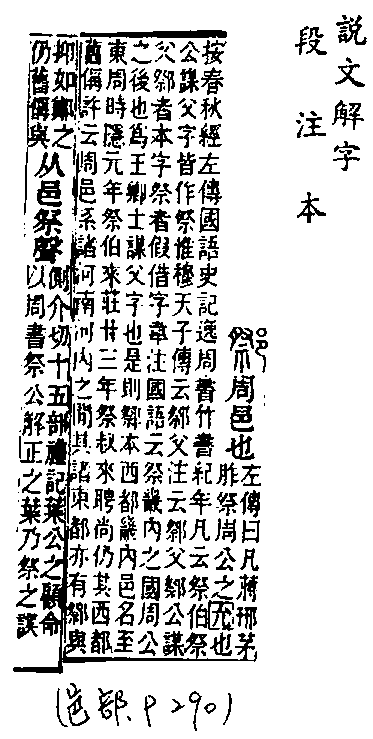 說文解字
段注本
䣝周邑也
左傳曰凡蔣邢茅
胙祭周公之胤也
按春秋經左傳國語史記逸周書竹書紀年凡云祭伯祭
公謀父字皆作祭惟穆天子傳云䣝父注云䣝父䣝公謀
父䣝者本字祭者假借字韋注國語云祭畿內之國周公
之後也爲王卿士謀父字也是則䣝本西都畿內邑名至
東周時隱元年祭伯來莊廿三年祭叔來聘尚仍其西都
舊偁許云周邑系諸河南河內之閒其諸東都亦有䣝與
抑如鄭之
仍舊偁與
从邑祭聲
側介切十五部禮記葉公之顧命
以周書祭公解正之葉乃祭之誤
(邑部.P290)